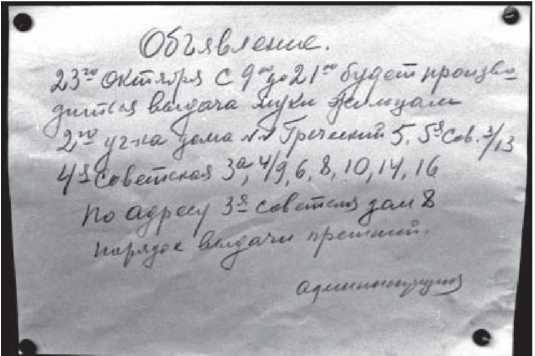 Объявление.
23го Октября с 9оо до 21оо будет произво-
дится выдача муки жильцам
2го уч-ка дома №№ Греческий 5, 5я Сов. 3/13
4я Советская 3а, 4/9, 6, 8, 10, 14, 16
по адресу 3я советская дом 8
порядок выдачи прежний.
администрация